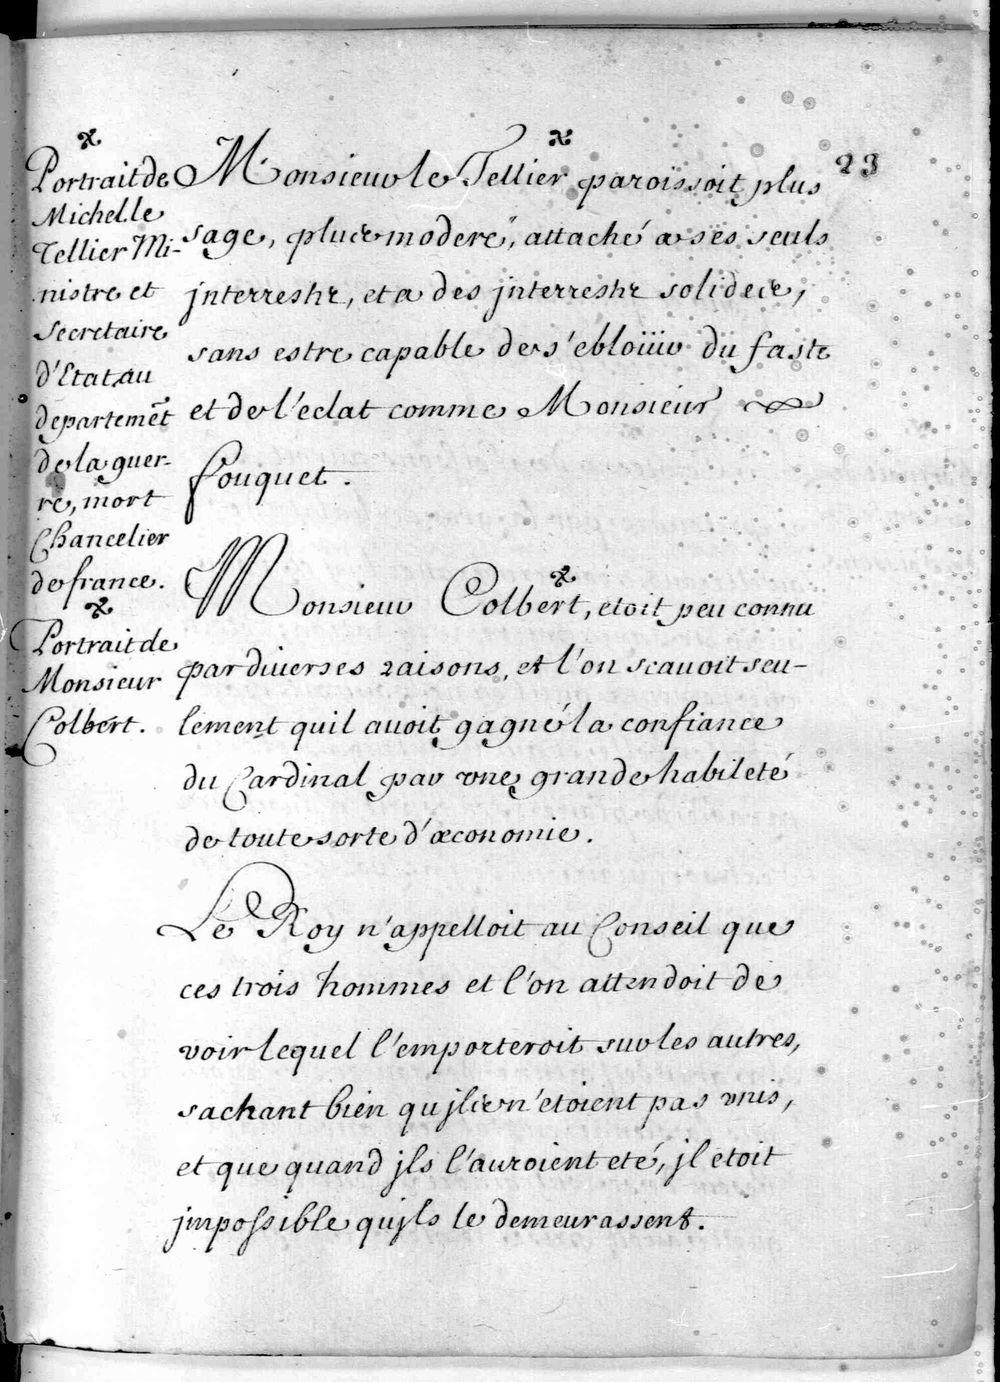 23
Portrait de
Michel le
Tellier Mi-
nistre et
Secretaire
d'Etat au
departemẽt
de la guer-
re, mort
Chancelier
de france.
Portrait de
Monsieur
Colbert.
Monsieur le Tellier paroissoit plus
sage, plus moderé, attaché a ses seuls
jnterrests, et a des jnterrests solides,
sans estre capable de s'ebloüir du faste
et de l'eclat comme Monsieur
fouquet.
Monsieur Colbert, etoit peu connu
par diverses raisons, et l'on scauoit seu-
lement quil auoit gagné la confiance
du Cardinal par vne grande habileté
de toute sorte d'œconomie.
Le Roy n'appelloit au Conseil que
ces trois hommes et l'on attendoit de
voir lequel l'emporteroit sur les autres,
sachant bien qu jls n'étoient pas vnis,
et que quand jls l'auroient eté, jl etoit
jmpossible qu jls le demeurassent.